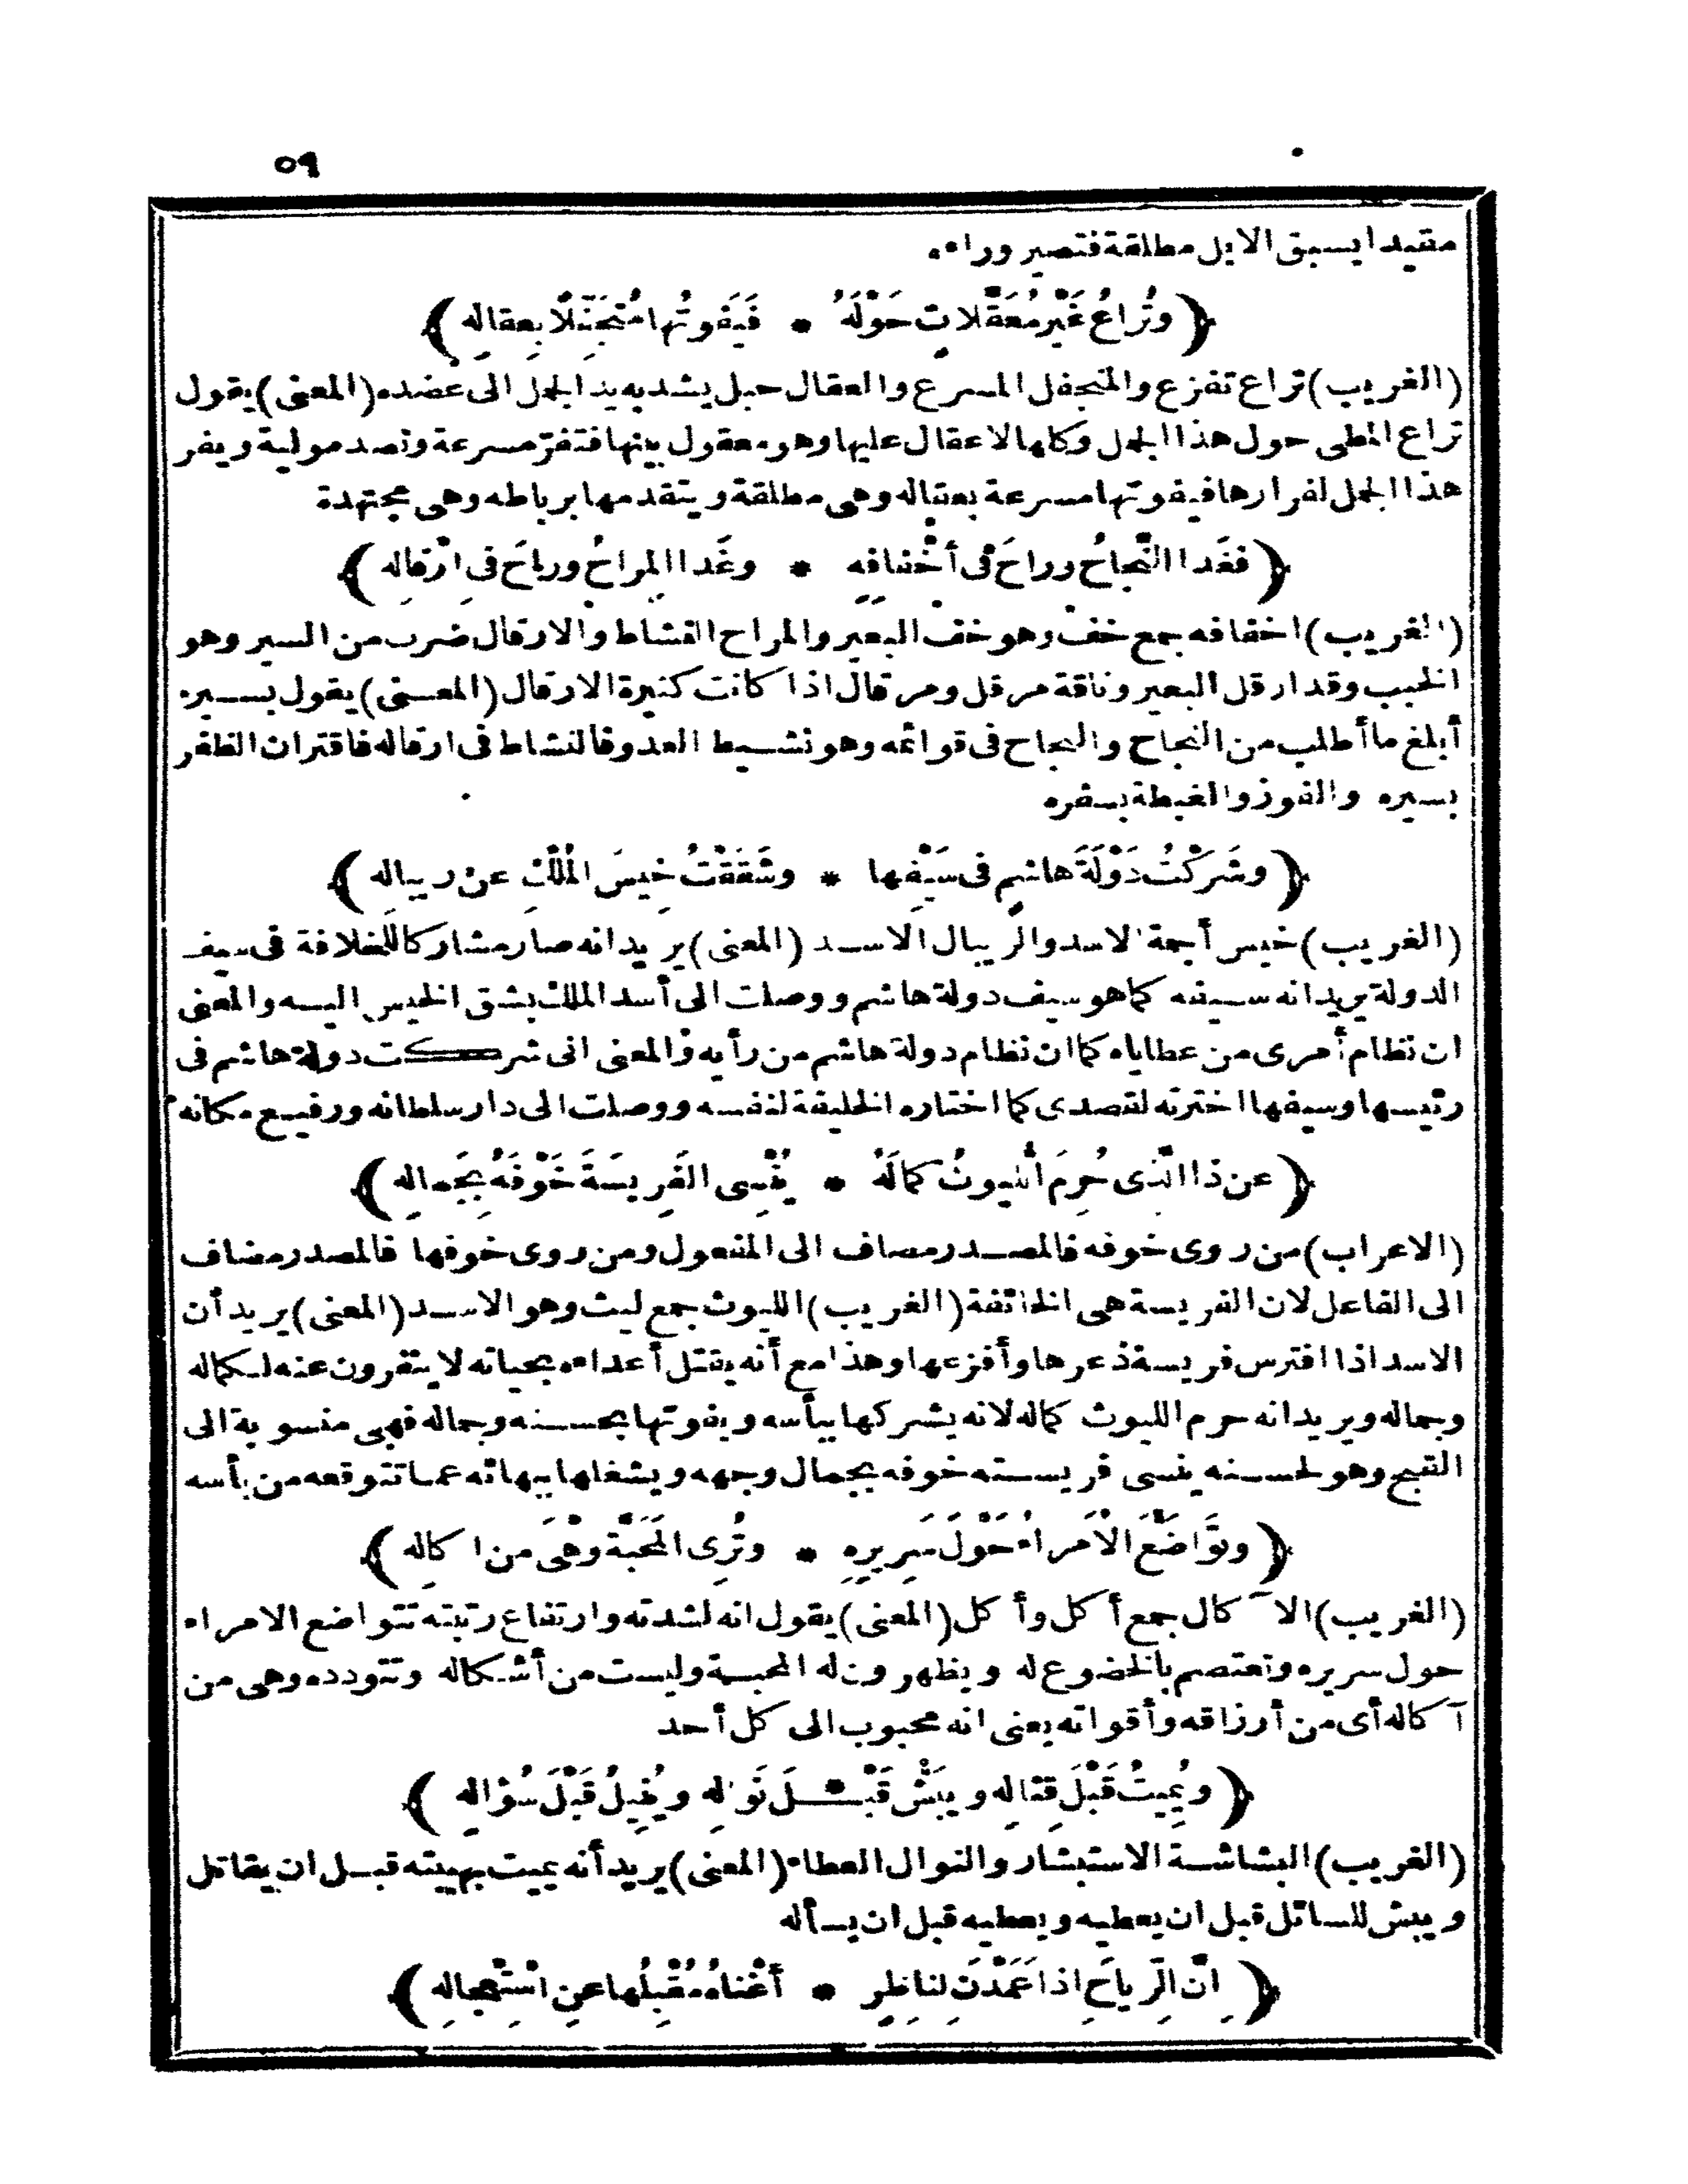 ٥٩
مقيدا يسبق الابل مطلقة فتصير وراءه
﴿ وتُراعُ غَيْرَ مُعَقَّلاتٍ حَوْلَهُ * فَيَفوتُها مُتَجَفِّلًا بِعِقالِهِ ﴾
(الغريب) تراع تفزع والمتجفل المسرع والعقال حبل يشد به يد الجمل الى عضده (المعنى) يقول
تراع المطى حول هذا الجمل وكلها لا عقال عليها وهو معقول بينها فتفرّ مسرعة وتصد مولية ويفر
هذا الجمل لفرارها فيفوتها مسرعة بعقاله وهى مطلقة ويتقدمها برباطه وهى مجتهدة
﴿ فغَدا النَّجاحُ وراحَ فى أخْفافِهِ * وغَدا المِراحُ وراحَ فى ارْقالِهِ ﴾
(الغريب) اخفافه جمع خف وهو خف البعير والمراح النشاط والارقال ضرب من السير وهو
الخبب وقد ارقل البعير وناقة مرقل ومرقال اذا كانت كثيرة الارقال (المعنى) يقول بسيره
أبلغ ما أطلب من النجاح والنجاح فى قوائمه وهو نشيط العدو فالنشاط فى ارقاله فاقتران الظفر
بسيره والفوز والغبطة بسفره
﴿ وشَرَكْتُ دَوْلَةَ هاشِمٍ فى سَيْفِها * وشَقَقْتُ خِيسَ المُلْكِ عن رِيبالِهِ ﴾
(الغريب) خيس أجمة الاسد والريبال الاسد (المعنى) يريد انه صار مشاركا للخلافة فى سيف
الدولة يريد انه سيفه كما هو سيف دولة هاشم ووصلت الى أسد الملك بشق الخيس اليه والمعنى
ان نظام أمرى من عطاياه كما ان نظام دولة هاشم من رأيه والمعنى انى شركت دولة هاشم فى
رئيسها وسيفها اخترته لقصدى كما اختاره الخليفة لنفسه ووصلت الى دار سلطانه ورفيع مكانه
﴿ عن ذا الّذى حُرِمَ اللُّيوثُ كمالَهُ * يُنْسِى الفَرِيسَةَ خَوْفَهُ بِجَمالِهِ ﴾
(الاعراب) من روى خوفه فالمصدر مضاف الى المفعول ومن روى خوفها فالمصدر مضاف
الى الفاعل لان الفريسة هى الخائفة (الغريب) الليوث جمع ليث وهو الاسد (المعنى) يريد أن
الاسد اذا افترس فريسة ذعرها وأفزعها وهذا مع أنه يقتل أعداءه بحياته لا ينفرون عنه لكماله
وجماله ويريد انه حرم الليوث كماله لانه يشركها ببأسه ويفوتها بحسنه وجماله فهى منسوبة الى
القبح وهو لحسنه ينسى فريسته خوفه بجمال وجهه ويشغلها ببهائه عما تتوقعه من بأسه
﴿ وتَوَاضَعُ الأُمَراءُ حَوْلَ سَرِيرِهِ * وتُرِى المَحَبَّةَ وهْىَ من اكالِهِ ﴾
(الغريب) الآكال جمع أكل وأكل (المعنى) يقول انه لشدته وارتفاع رتبته تتواضع الامراء
حول سريره وتعتصم بالخضوع له ويظهرون له المحبة وليست من أشكاله وتتودده وهى من
آكاله أى من أرزاقه وأقواته يعنى انه محبوب الى كل أحد
﴿ ويُمِيتُ قَبْلَ قِتالِهِ ويبَشُّ قَبْـــلَ نَوالِهِ ويُنِيلُ قَبْلَ سُؤالِهِ ﴾
(الغريب) البشاشة الاستبشار والنوال العطاء (المعنى) يريد أنه يميت بهيبته قبل ان يقاتل
ويبش للسائل قبل ان يعطيه ويعطيه قبل ان يسأله
﴿ اِنَّ الرِّياحَ اذا عَمَدْنَ لِناظِرٍ * أغْناهُ مُقْبِلُها عنِ اسْتِعْجالِهِ ﴾